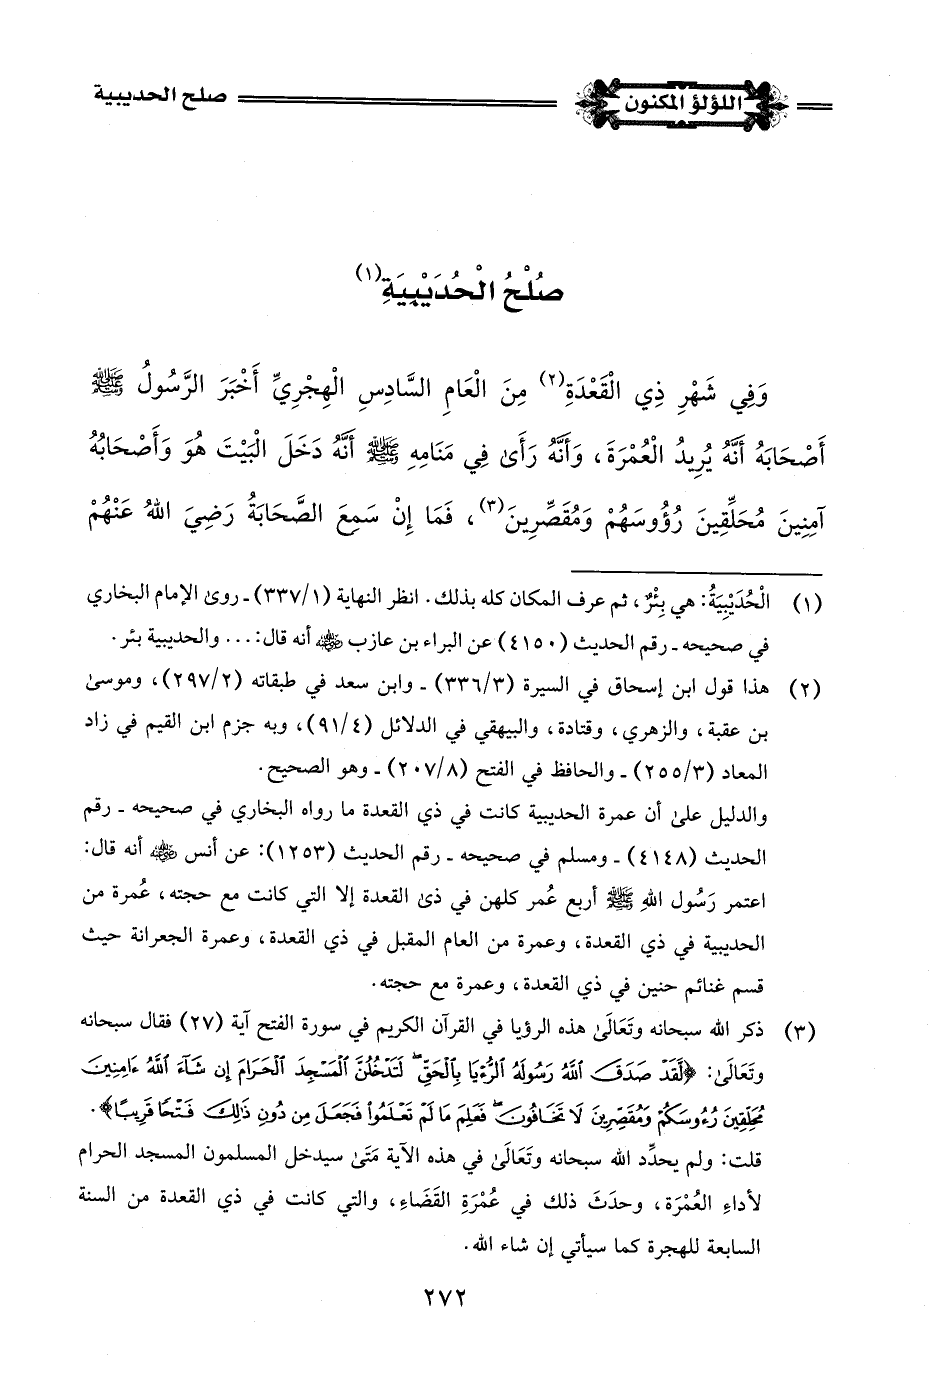 اللؤلؤ المكنون صلح الحديبية
صُلْحُ الْحُدَيْبِيَةِ(١)
وَفِي شَهْرِ ذِي الْقَعْدَةِ(٢) مِنَ الْعَامِ السَّادِسِ الْهِجْرِيِّ أَخْبَرَ الرَّسُولُ ﷺ
أَصْحَابَهُ أَنَّهُ يُرِيدُ الْعُمْرَةَ، وَأَنَّهُ رَأَىٰ فِي مَنَامِهِ ﷺ أَنَّهُ دَخَلَ الْبَيْتَ هُوَ وَأَصْحَابُهُ
آمِنِينَ مُحَلِّقِينَ رُؤُوسَهُمْ وَمُقَصِّرِينَ(٣)، فَمَا إِنْ سَمِعَ الصَّحَابَةُ رَضِيَ اللهُ عَنْهُمْ
(١) الْحُدَيْبِيَةُ: هي بِئْرٌ، ثم عرف المكان كله بذلك. انظر النهاية (٣٣٧/١) ـ روىٰ الإمام البخاري
في صحيحه ـ رقم الحديث (٤١٥٠) عن البراء بن عازب رضي الله عنه أنه قال: ... والحديبية بئر.
(٢) هذا قول ابن إسحاق في السيرة (٣٣٦/٣) ـ وابن سعد في طبقاته (٢٩٧/٢)، وموسىٰ
بن عقبة، والزهري، وقتادة، والبيهقي في الدلائل (٩١/٤)، وبه جزم ابن القيم في زاد
المعاد (٢٥٥/٣) ـ والحافظ في الفتح (٢٠٧/٨) ـ وهو الصحيح.
والدليل علىٰ أن عمرة الحديبية كانت في ذي القعدة ما رواه البخاري في صحيحه ـ رقم
الحديث (٤١٤٨) ـ ومسلم في صحيحه ـ رقم الحديث (١٢٥٣): عن أنس رضي الله عنه أنه قال:
اعتمر رَسُول اللهِ ﷺ أربع عُمر كلهن في ذىٰ القعدة إلا التي كانت مع حجته، عُمرة من
الحديبية في ذي القعدة، وعمرة من العام المقبل في ذي القعدة، وعمرة الجعرانة حيث
قسم غنائم حنين في ذي القعدة، وعمرة مع حجته.
(٣) ذكر الله سبحانه وتَعَالَىٰ هذه الرؤيا في القرآن الكريم في سورة الفتح آية (٢٧) فقال سبحانه
وتَعَالَىٰ: ﴿لَّقَدْ صَدَقَ ٱللَّهُ رَسُولَهُ ٱلرُّءْيَا بِٱلْحَقِّ ۖ لَتَدْخُلُنَّ ٱلْمَسْجِدَ ٱلْحَرَامَ إِن شَآءَ ٱللَّهُ ءَامِنِينَ
مُحَلِّقِينَ رُءُوسَكُمْ وَمُقَصِّرِينَ لَا تَخَافُونَ ۖ فَعَلِمَ مَا لَمْ تَعْلَمُوا۟ فَجَعَلَ مِن دُونِ ذَٰلِكَ فَتْحًا قَرِيبًا﴾.
قلت: ولم يحدِّد الله سبحانه وتَعَالَىٰ في هذه الآية مَتَىٰ سيدخل المسلمون المسجد الحرام
لأداءِ العُمْرَة، وحدَثَ ذلك في عُمْرَةِ القَضَاءِ، والتي كانت في ذي القعدة من السنة
السابعة للهجرة كما سيأتي إن شاء الله.
٢٧٢